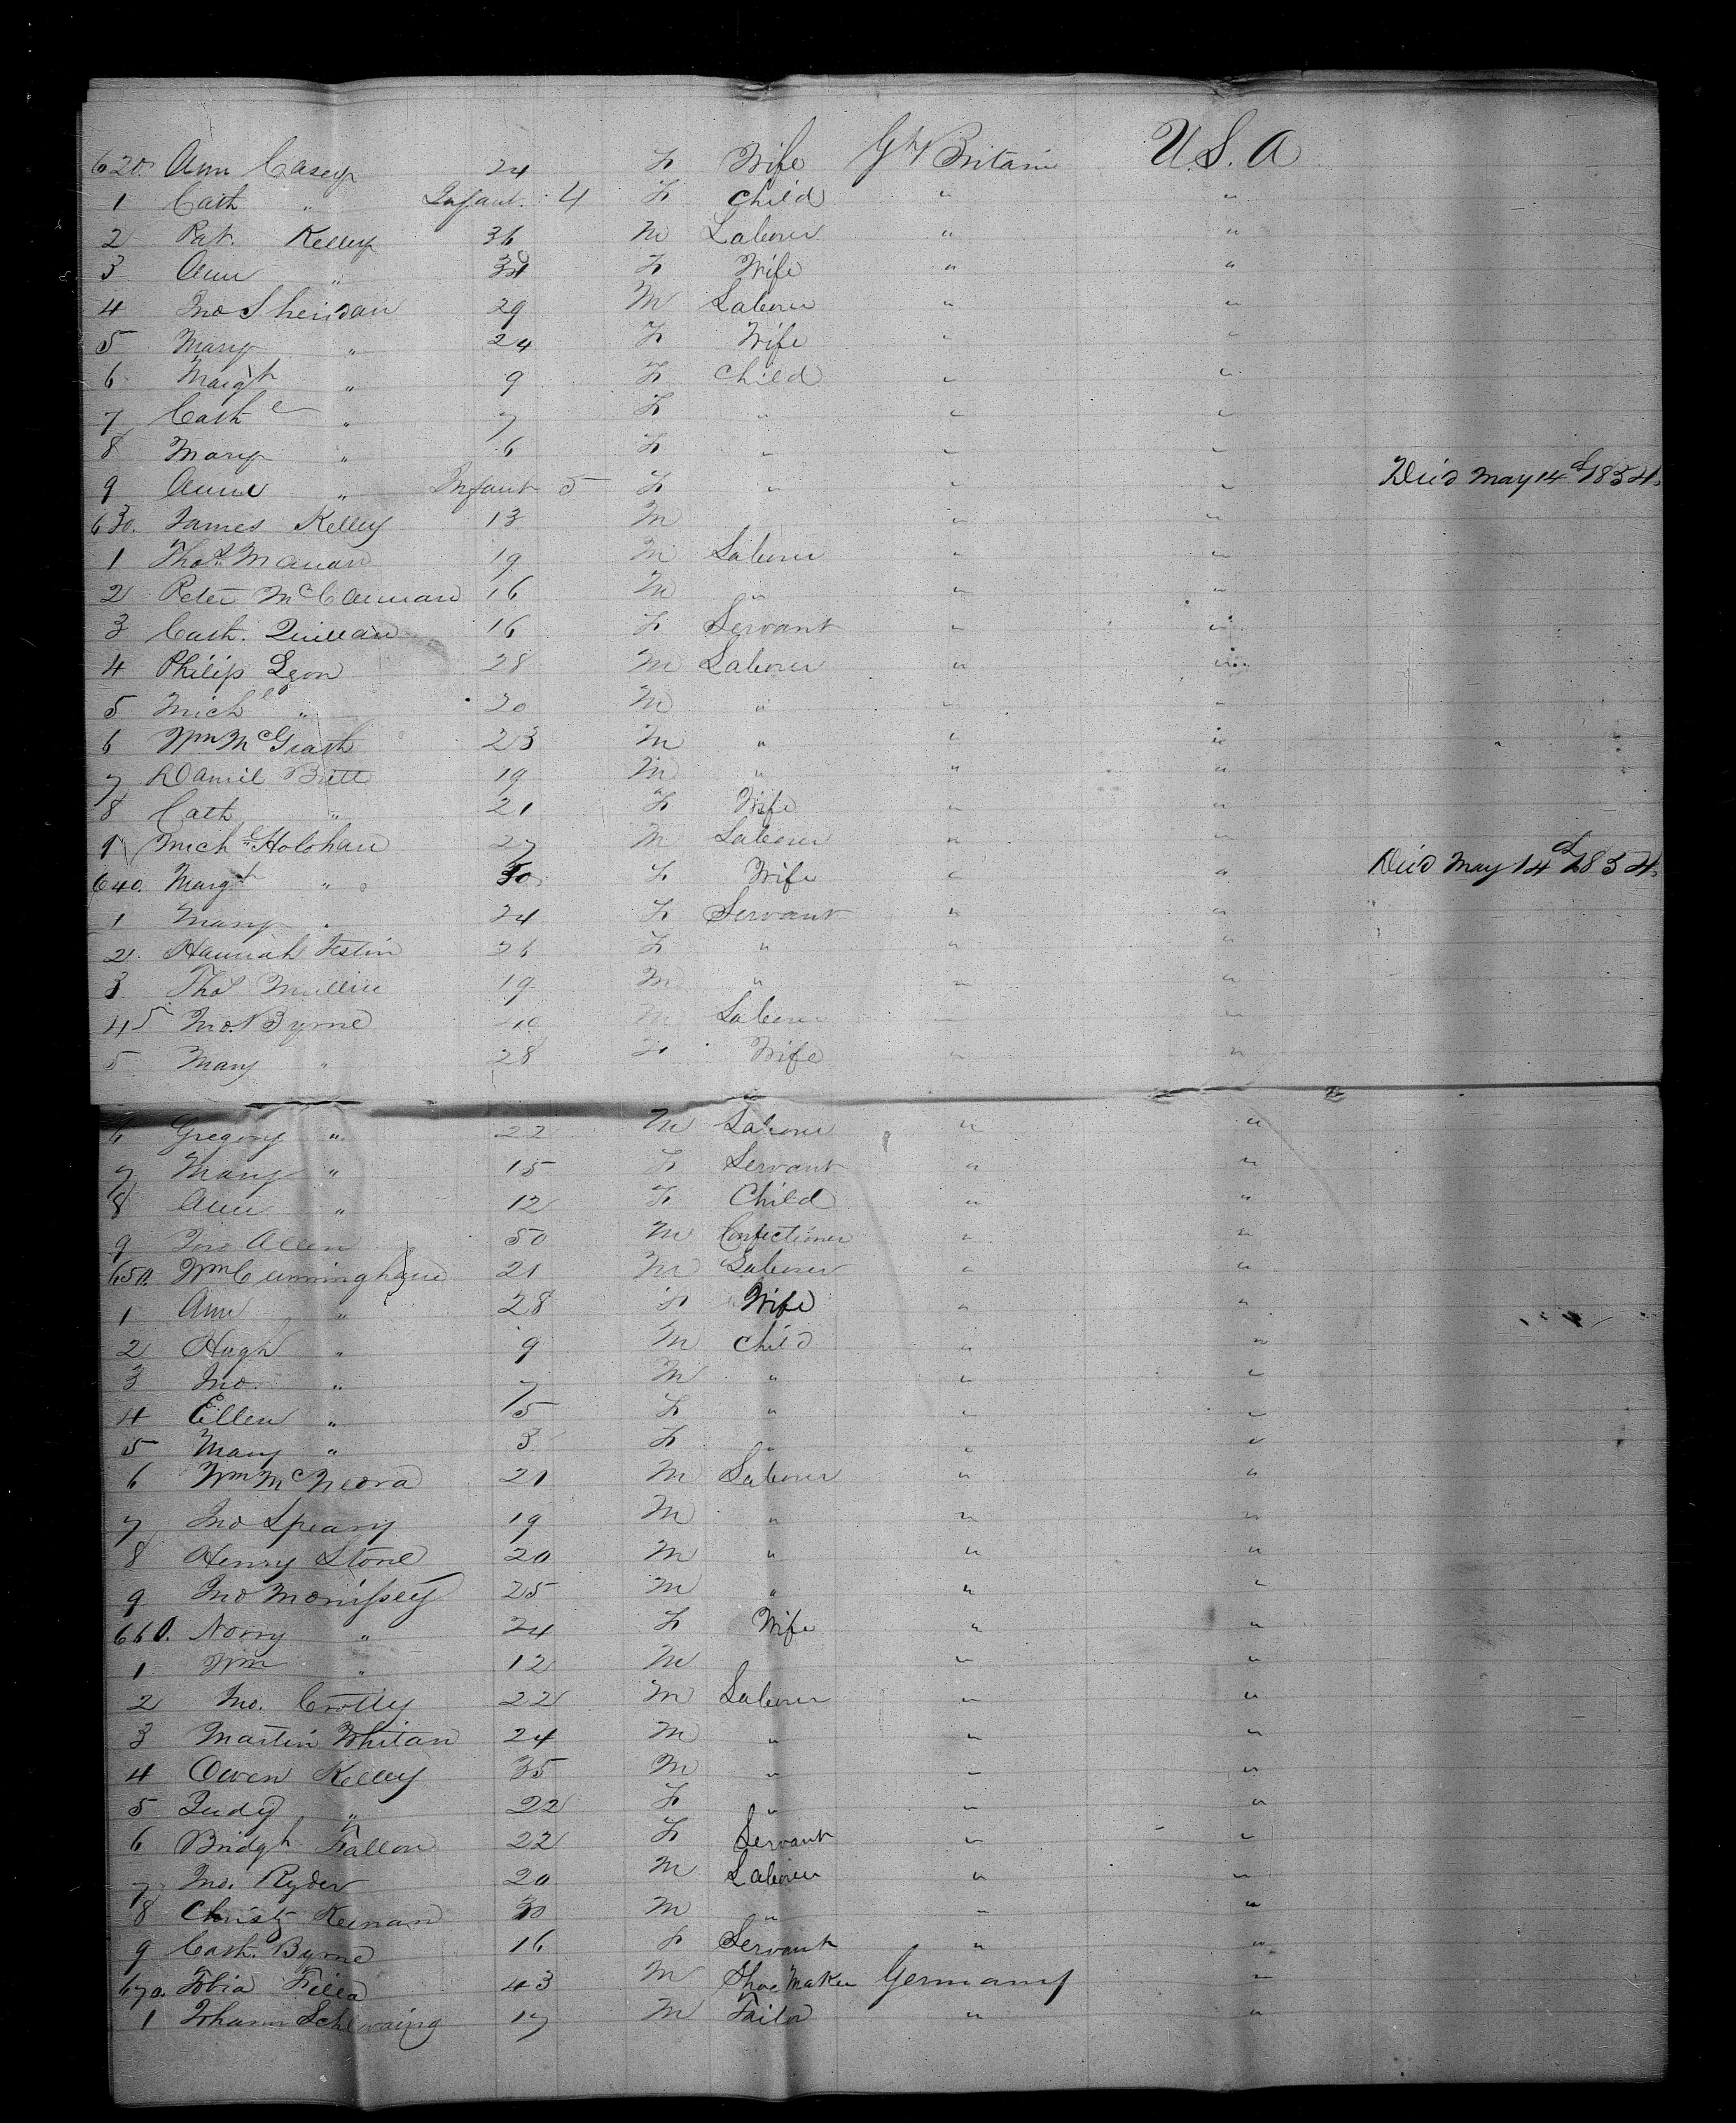 620. Ann Casey 24 F Wife Gt Britain U.S.A
1 Cath " Infant. 4 F Child " "
2 Pat. Kelley 36 M Laborer " "
3 Ann " F Wife " "
4 Jno Sheridan 29 M Laborer " "
5 Mary " 24 F Wife " "
6 Margt " 9 F Child " "
7 Cathe " 7 F " " "
8 Mary " 6 F " " "
9 Anne " Infant 5 F " " " Died May 14th 1854.
630. James Kelley 13 M " "
1 Thos Manan 19 M Laborer " "
2 Peter 16 M " " "
3 Cath. Quillan 16 F Servant " "
4 Philip Lyon 28 M Laborer " "
5 Michl " 20 M " " "
6 Wm McGrath 23 M " " "
7 Daniel Britt 19 M " " "
8 Cath " 21 F Wife " "
9 Michl Holohan 27 M Laborer " "
640. Margt " 30 F Wife " " Died May 14th 1854.
1 Mary " 24 F Servant " "
2. Hannah Festin 26 F " " "
3 Thos Mullin 19 M " " "
45 Jno. Byrne 40 M Laborer " "
5 Mary " 28 F Wife " "
6 Gregory " 22 M Laborer " "
7 Mary " 15 F Servant " "
8 Ann " 12 F Child " "
9 Jno Allen 50 M Confectioner " "
650. Wm Cunningham 21 M Laborer " "
1 Ann " 28 F Wife " "
2 Hugh " 9 M Child " "
3 Jno. " 7 M " " "
4 Ellen " 5 F " " "
5 Mary " 3 F " " "
6 Wm McNeora 21 M Laborer " "
7 Jno Speary 19 M " " "
8 Henry Stone 20 M " " "
9 Jno Morrissey 25 M " " "
660. Norry " 24 F Wife " "
1 Wm " 12 M " "
2 Jno. Crotty 22 M Laborer " "
3 Martin Whitan 24 M " " "
4 Owen Kelley 35 M " " "
5 Judy " 22 F " " "
6 Bridgt Fallon 22 F Servant " "
7 Jno. Ryder 20 M Laborer " "
8 Christy Keenan 30 M " " "
9 Cath. Byrne 16 F Servant " "
670. Tobia Filla 43 M Shoe Maker Germany "
1 Johann Schwaing 17 M Tailor " "